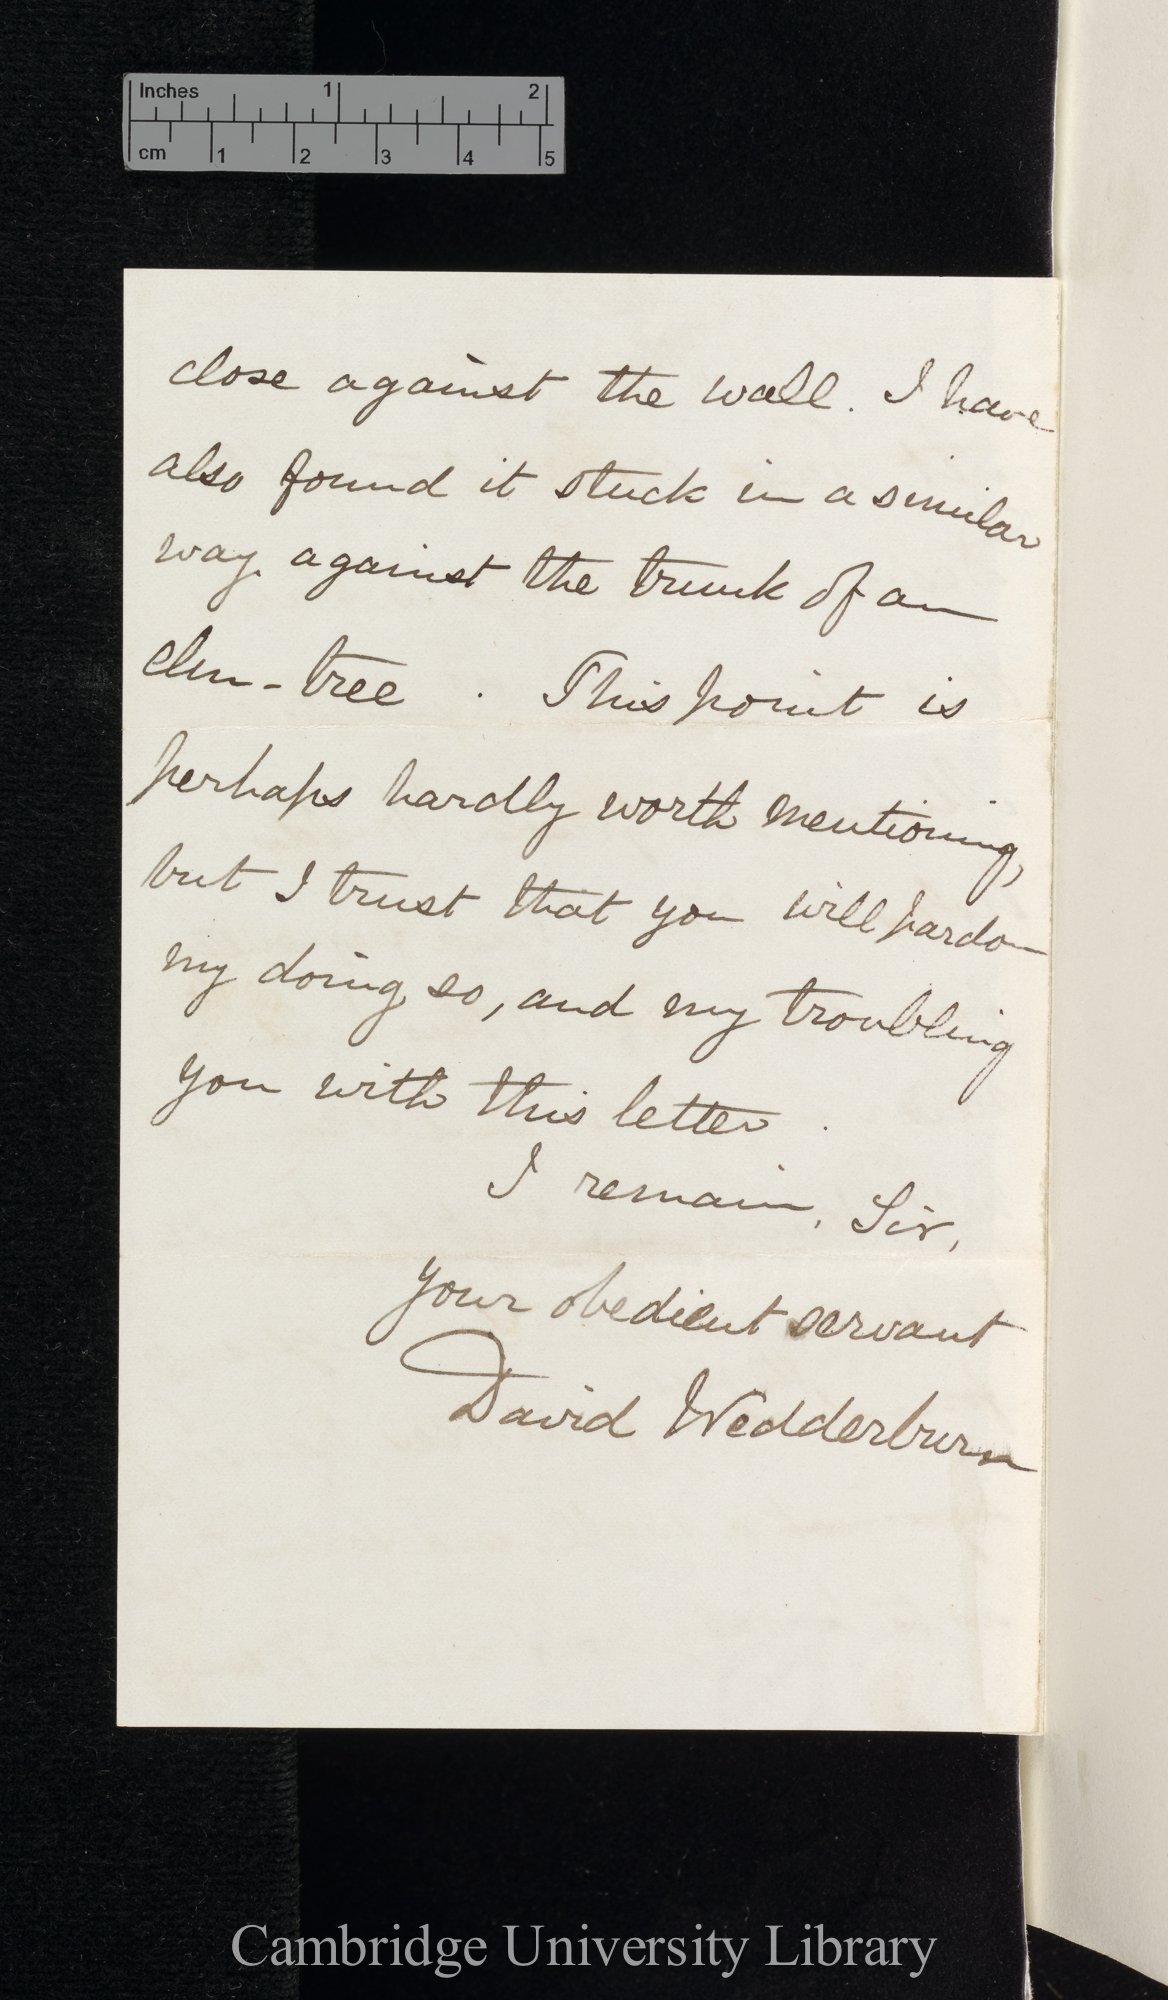 Inches 1 2
cm 1 2 3 4 5
close against the wall. I have
also found it stuck in a similar
way against the trunk of an
elm-tree. This point is
perhaps hardly worth mentioning,
but I trust that you will pardon
my doing so, and my troubling
you with this letter.
I remain, Sir,
your obedient servant
David Wedderburn
Cambridge University Library